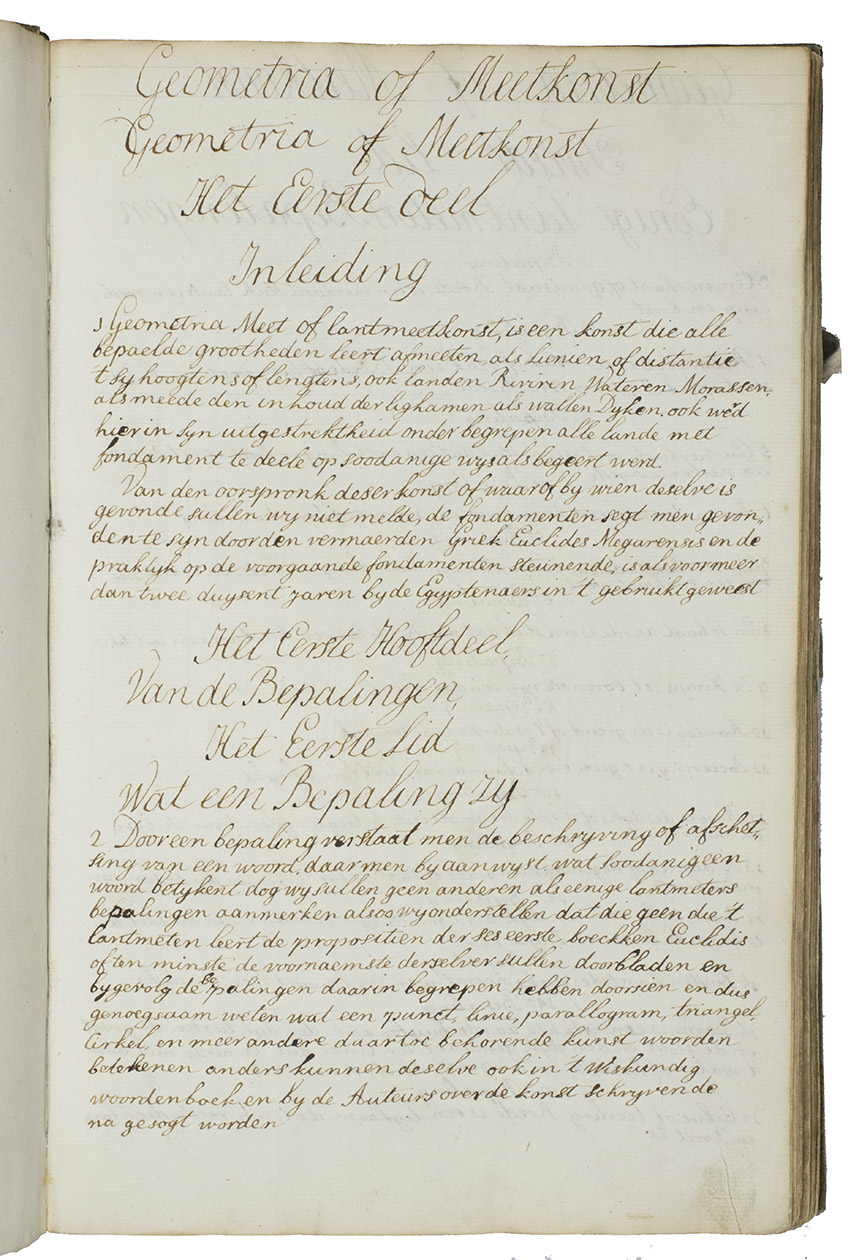 Geometria of Meetkonst
Geometria of Meetkonst
Het Eerste deel
Inleiding
1 Geometria Meet of lantmeetkonst, is een konst die alle
bepaelde grootheden leert afmeeten, als Lienien of distantie
't sy hoogtens of lengtens, ook landen Riviren Wateren Morassen,
als meede den inhoud der lighamen als wallen Dyken. ook werd
hier in syn uitgestrektheid onder begrepen alle lande met
fondament te deele op soodanige wys als begeert werd.
Van den oorspronk deser konst of waar of by wien deselve is
gevonde sullen wy niet melde, de fondamenten segt men gevon„
den te syn door den vermaerden Griek Euclides Megarensis en de
praktyk op de voorgaande fondamenten steunende, is als voor meer
dan twee duysent jaren by de Egyptenaers in 't gebruikt geweest
Het Eerste Hooftdeel,
Van de Bepalingen,
Het Eerste Lid
Wat een Bepaling zy
2 Door een bepaling verstaat men de beschryving of afschet„
sing van een woord, daar men by aanwyst, wat soodanig een
woord betykent dog wy sullen geen anderen als eenige lantmeters
bepalingen aanmerken alsoo wy onderstellen dat die geen die 't
lantmeten leert de propositien der ses eerste boeckken Euclidis
of ten minste de voornaemste derselver sullen doorbladen en
by gevolg de Bepalingen daar in begrepen hebben doorsien en dus
genoegsaam weten wat een punct, linie, parallogram, triangel,
Cirkel, en meer andere daar toe behorende kunst woorden
betekenen anders kunnen deselve ook in 't Wiskundig
woordenboek en by de Auteurs over de konst schryvende
na gesogt worden